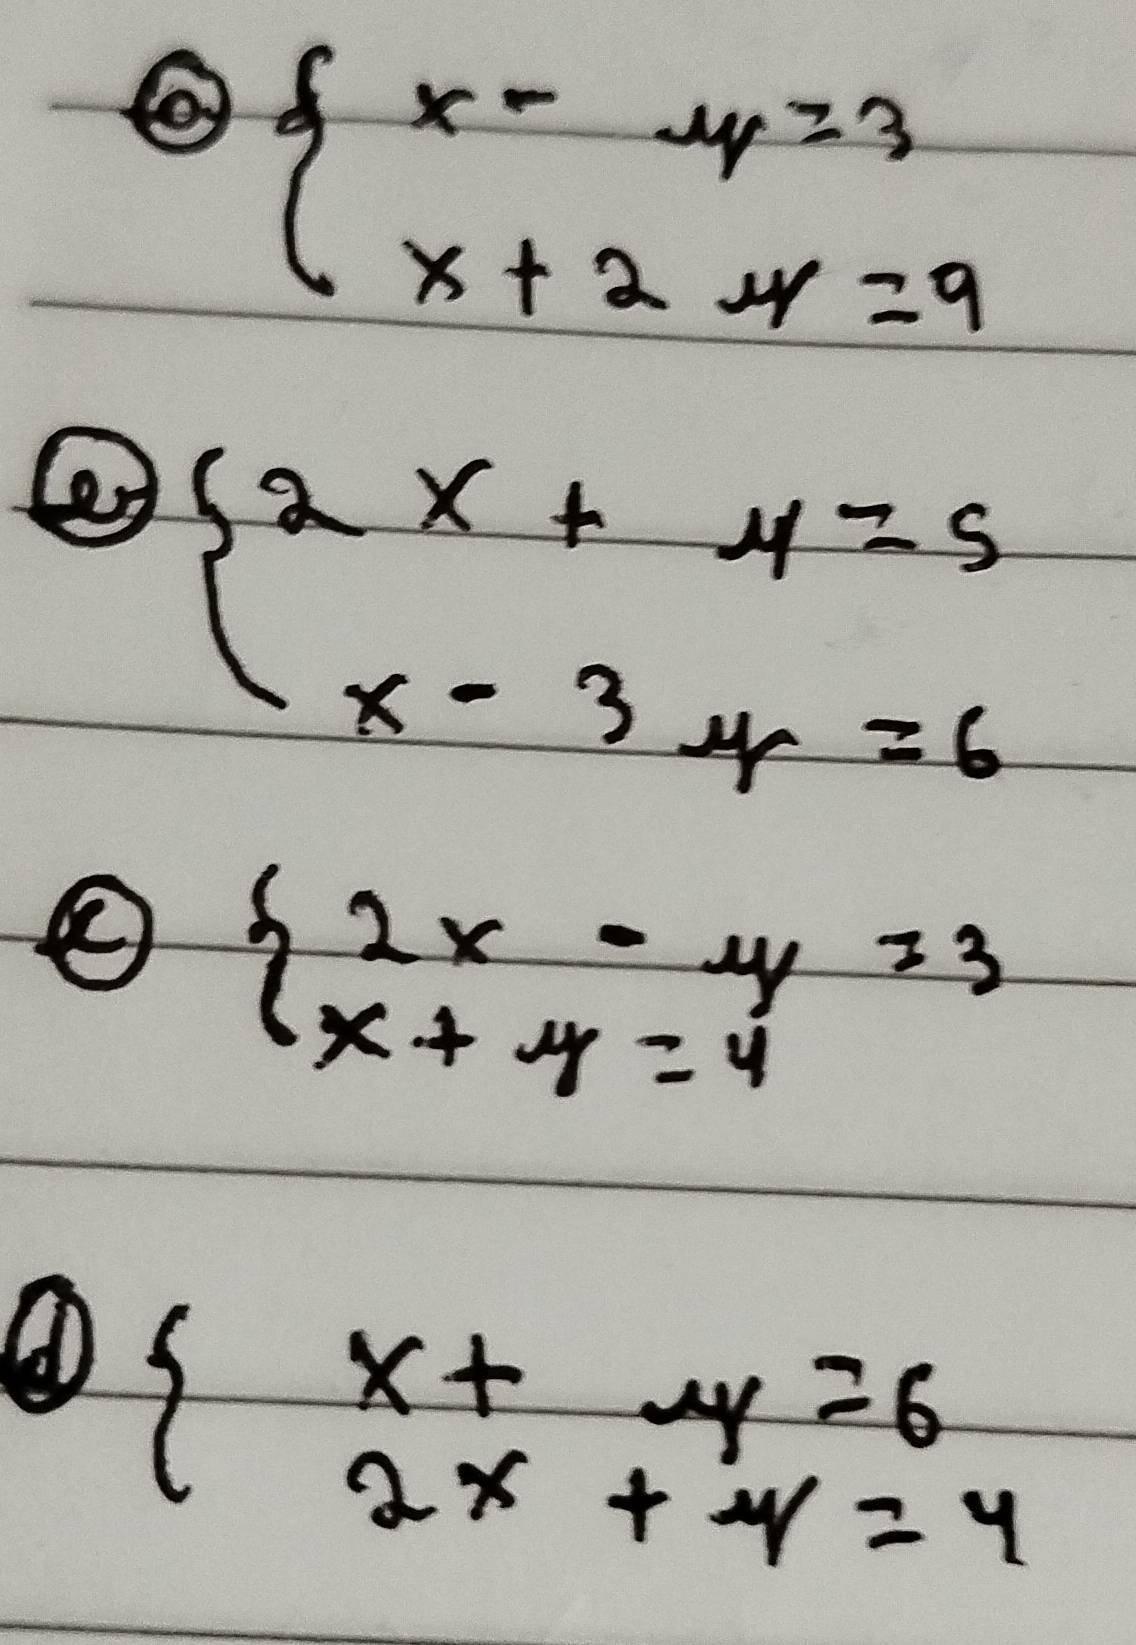 ⓐ { x - y = 3
x + 2 y = 9
ⓑ { 2 x + y = 5
x - 3 y = 6
ⓒ { 2x - y = 3
x + y = 4
ⓓ { x + y = 6
2x + y = 4